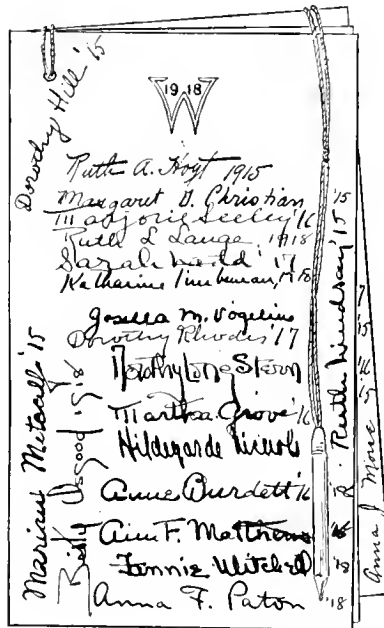 Dorothy Hill '15
19 18
W
Ruth A. Hoyt 1915
Margaret D. Christian '15
Marjorie Seeley '16
Ruth L Lange 1918
Sarah Ladd '17
Katharine Timberman, 1918
M. Vogelius
Dorothy Rhodes '17
Dorothy Long Stern
Martha Grove '16
Hildegarde Nichols
Anne Burdett '16
Ann F. Matthews
Fannie Mitchell
Anna F. Paton '18
Marian Metcalf '15
Betty Osgood 1918
Ruth Lindsay '15
Anna J.